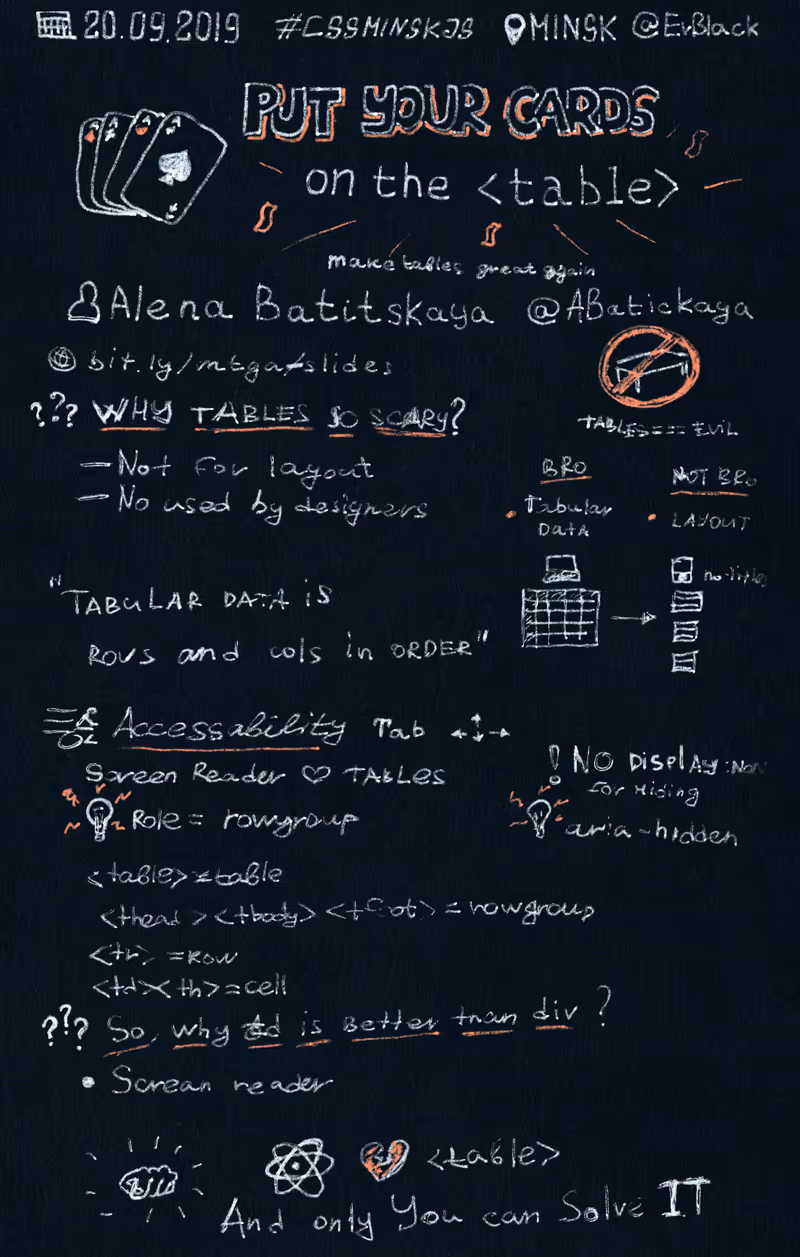 20.09.2019 #CSSMINSKJS MINSK @EvBlack
PUT YOUR CARDS
on the <table>
make tables great again
Alena Batitskaya @ABatickaya
bit.ly/mtga-slides
??? WHY TABLES SO SCARY?
TABLES === EVIL
— Not for layout
— No used by designers
BRO
• Tabular
DATA
NOT BRO
• LAYOUT
"TABULAR DATA is
ROWS and cols in ORDER"
Accessability Tab
Screen Reader ♡ TABLES
Role = rowgroup
! NO DISPLAY:NON
for Hiding
aria-hidden
<table> = table
<thead><tbody><tfoot> = rowgroup
<tr> = ROW
<td><th> = cell
??? So, why td is Better than div ?
• Screan reader
<table>
And only You can Solve IT